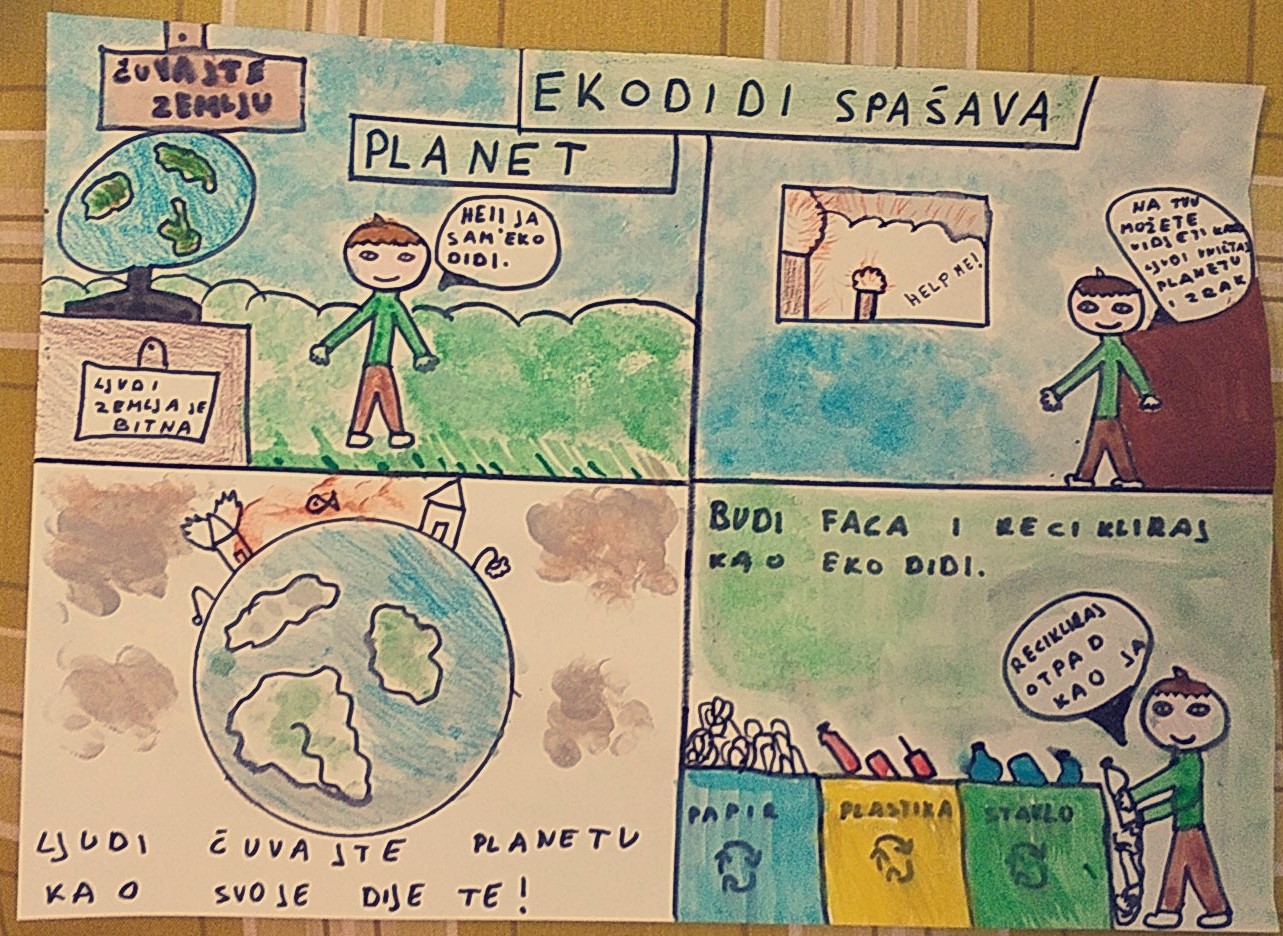 EKODIDI SPAŠAVA
PLANET
ČUVAJTE
ZEMLJU
HEJ! JA
SAM EKO
DIDI.
LJUDI
ZEMLJA JE
BITNA
NA TVU
MOŽETE
VIDJETI KAKO
LJUDI UNIŠTAJ
PLANETU
I ZRAK
HELP ME!
LJUDI ČUVAJTE PLANETU
KAO SVOJE DIJETE!
BUDI FACA I RECIKLIRAJ
KAO EKO DIDI.
RECIKLIRAJ
OTPAD
KAO JA
PAPIR
PLASTIKA
STAKLO